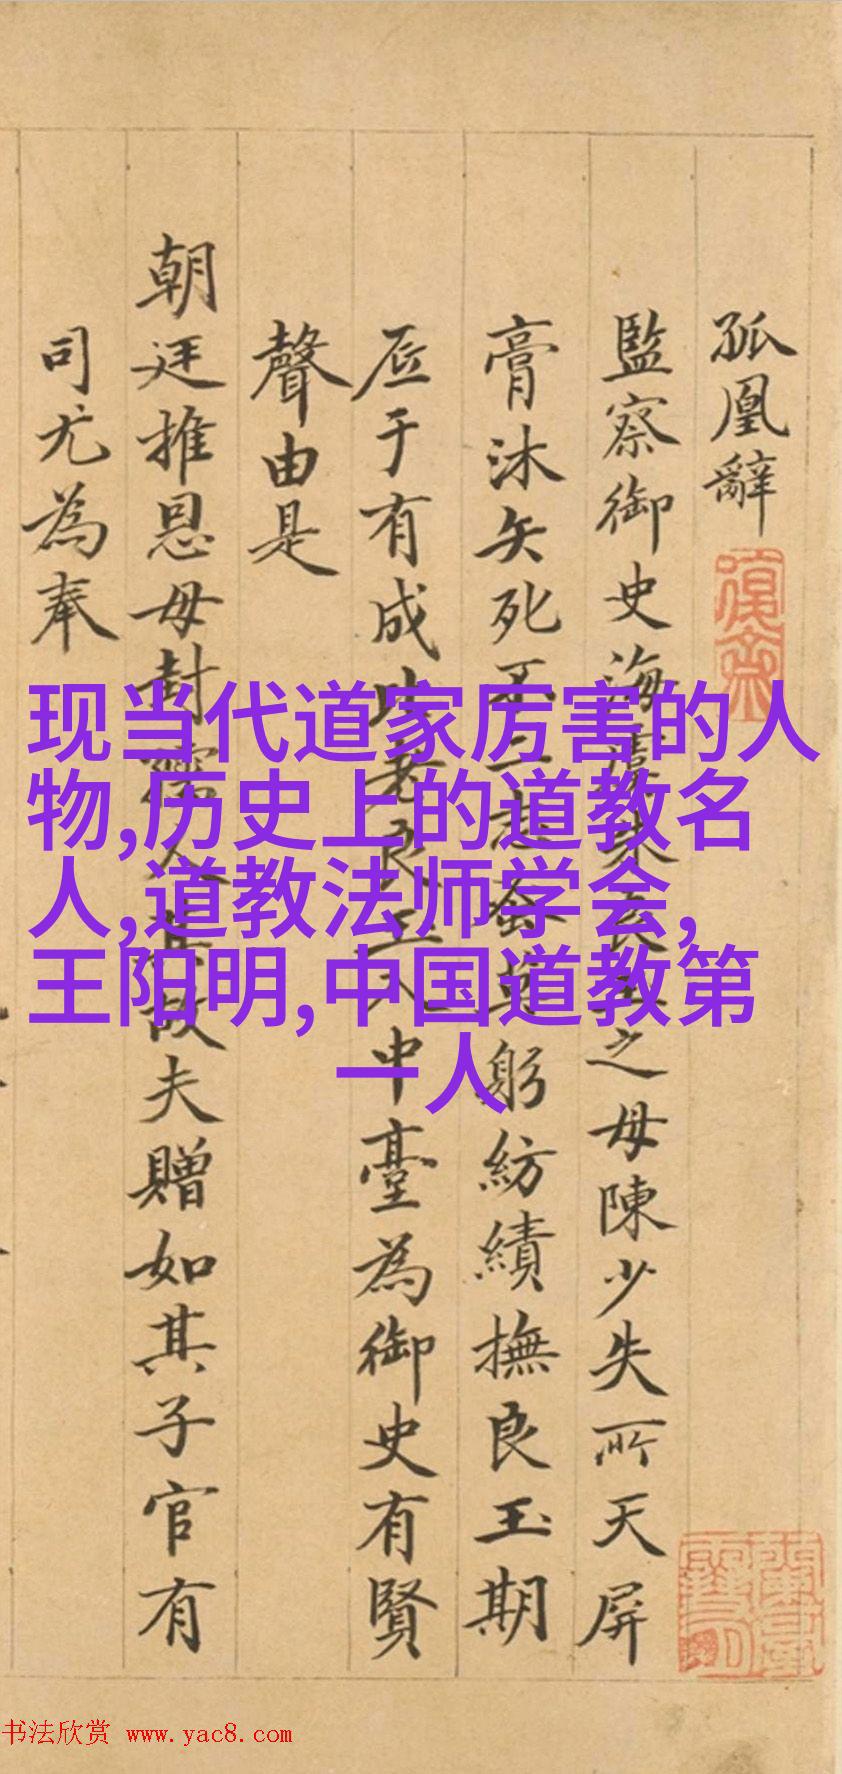 孤凰辭
監察御史海虞朱良玉之母陳少失所天屏
膏沐矢死不二志蚤夜躬紡績撫良玉期
底于有成以老良玉入中臺為御史有賢
聲由是
朝廷推恩母封孺人其故夫贈如其子官有
司尤為奉
现当代道家厉害的人
物,历史上的道教名
人,道教法师学会,
王阳明,中国道教第
一人
书法欣赏 www.yac8.com